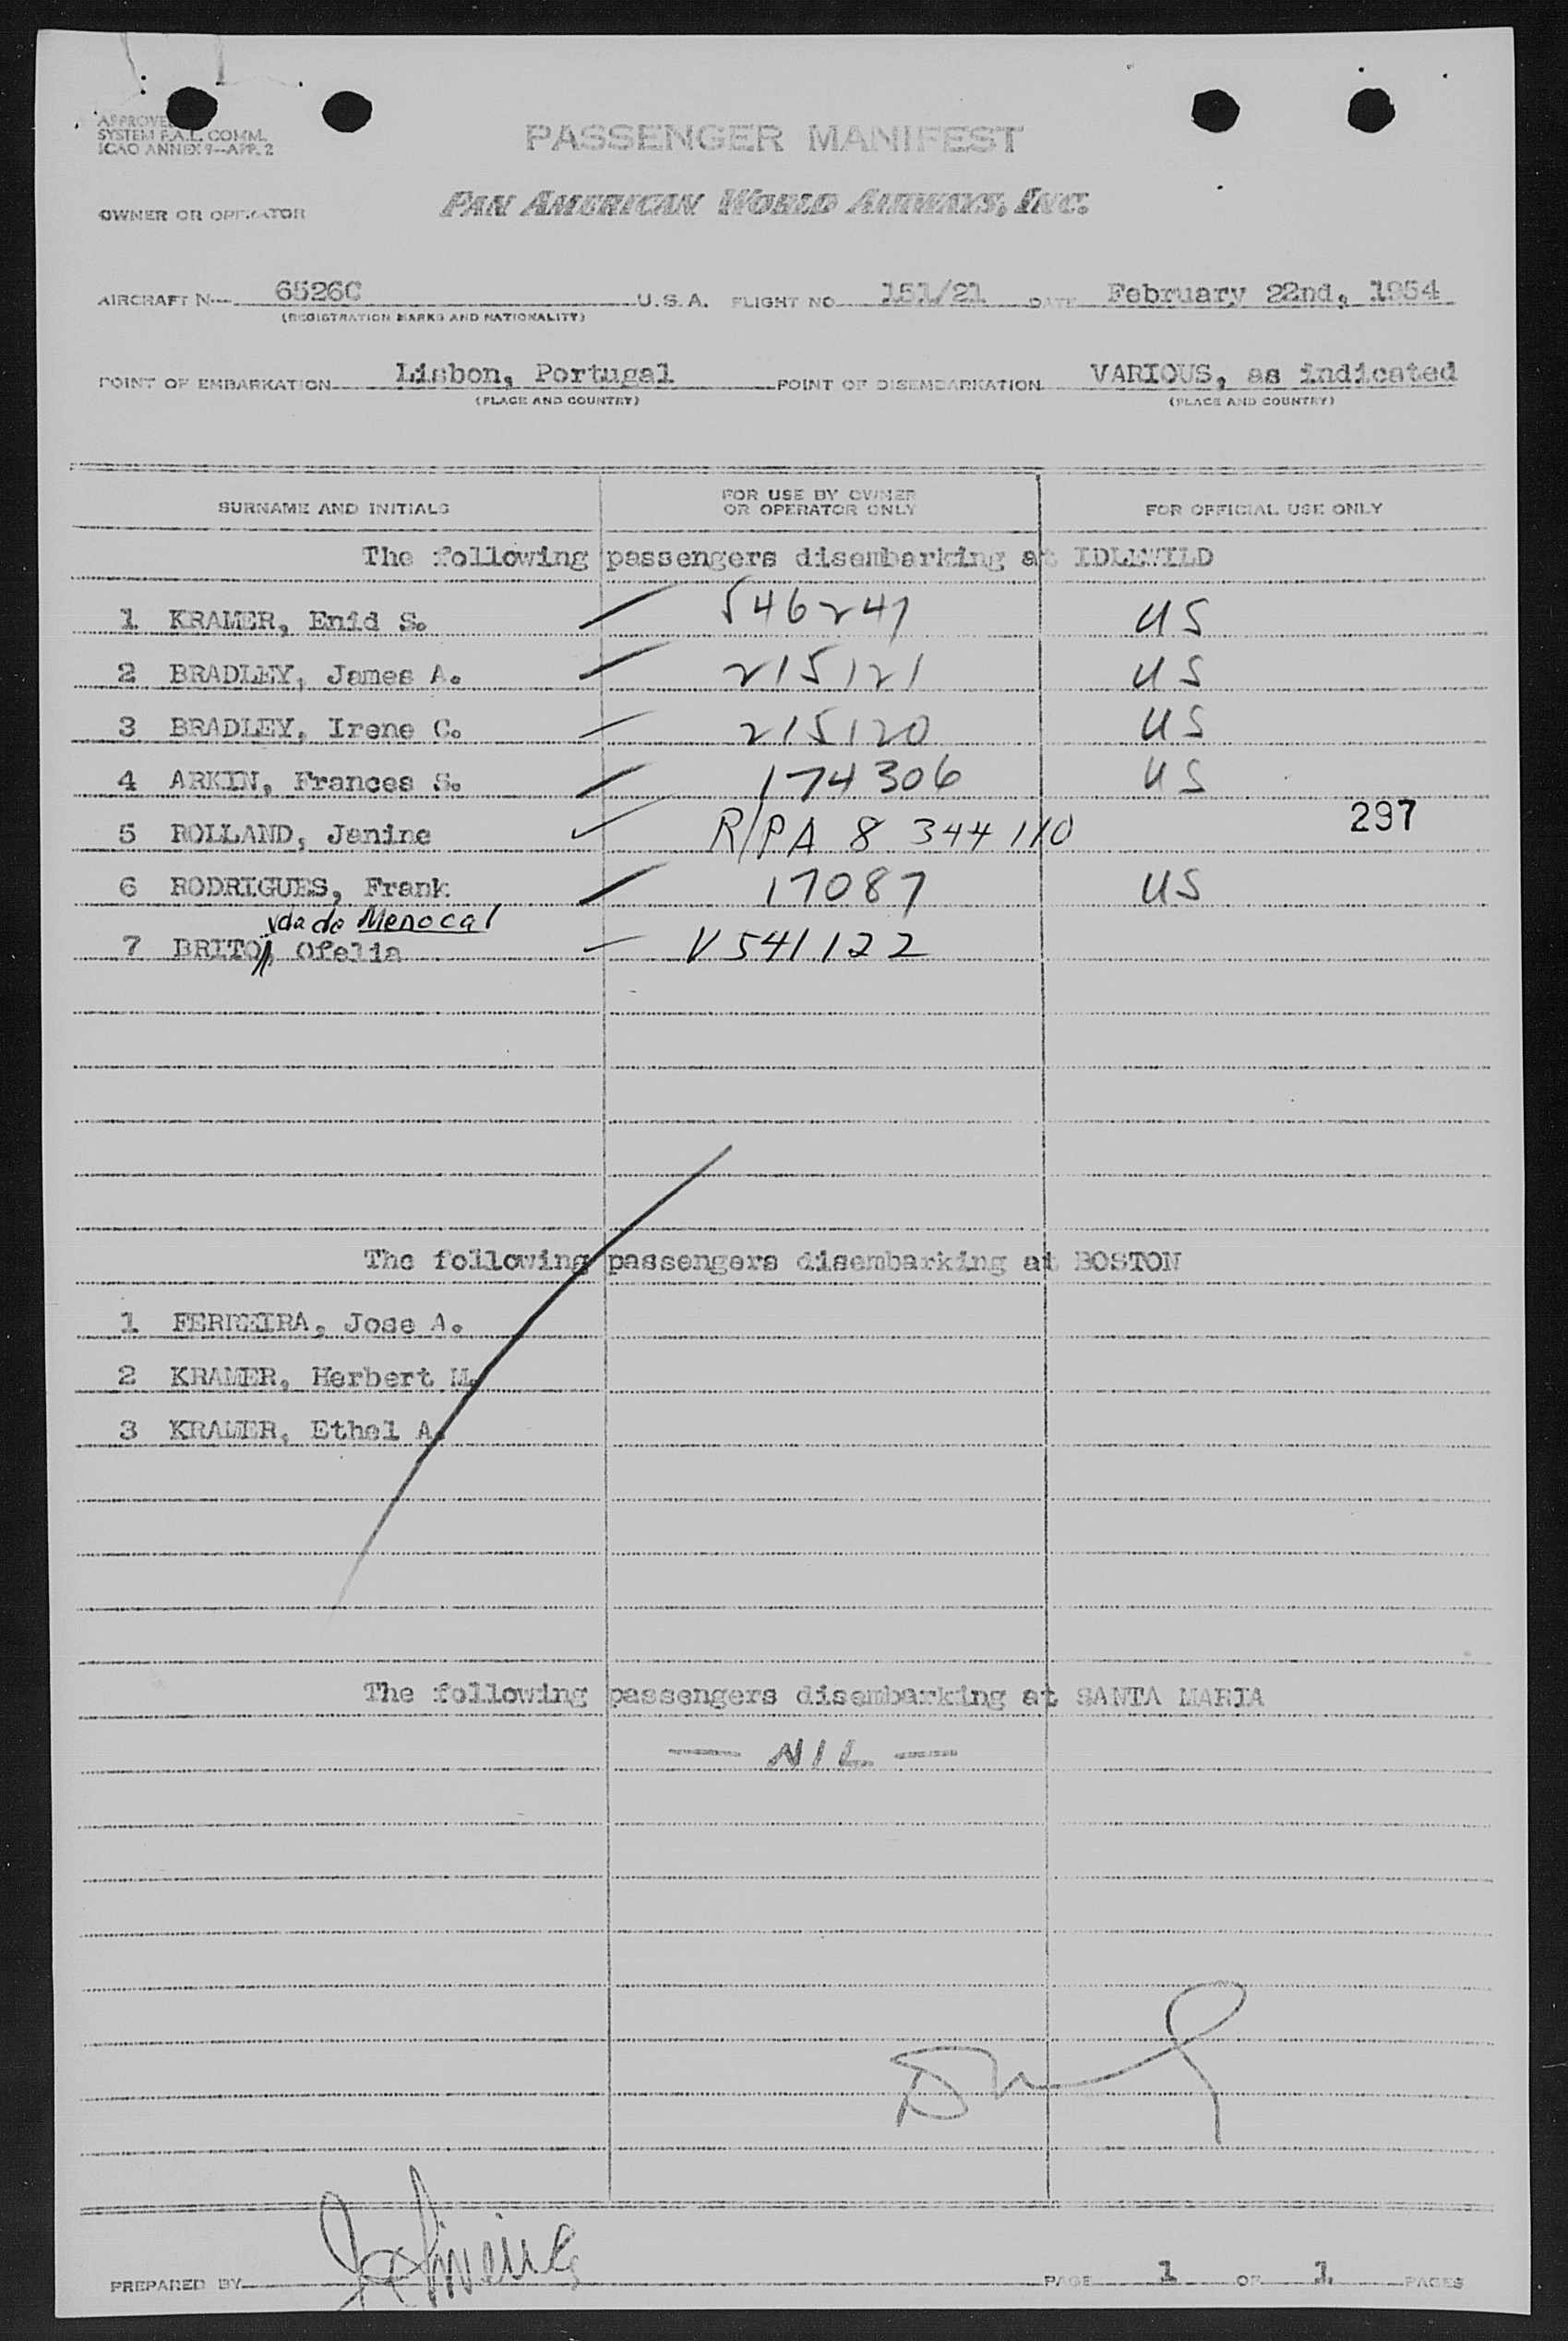 APPROVED
SYSTEM F.A.L. COMM.
ICAO ANNEX 9—APP. 2
PASSENGER MANIFEST
OWNER OR OPERATOR PAN AMERICAN WORLD AIRWAYS, INC.
AIRCRAFT N— 6526C U.S.A. FLIGHT NO 151/21 DATE February 22nd, 1954
(REGISTRATION MARKS AND NATIONALITY)
POINT OF EMBARKATION Lisbon, Portugal POINT OF DISEMBARKATION VARIOUS, as indicated
(PLACE AND COUNTRY) (PLACE AND COUNTRY)
SURNAME AND INITIALS FOR USE BY OWNER OR OPERATOR ONLY FOR OFFICIAL USE ONLY
The following passengers disembarking at IDLEWILD
1 KRAMER, Enid S. 546247 US
2 BRADLEY, James A. 215121 US
3 BRADLEY, Irene C. 215120 US
4 ARKIN, Frances S. 174306 US
5 ROLLAND, Janine R/PA 8 344110 297
6 RODRIGUES, Frank 17087 US
vda de Menocal
7 BRITO, Ofelia V541122
The following passengers disembarking at BOSTON
1 FERREIRA, Jose A.
2 KRAMER, Herbert M.
3 KRAMER, Ethel A.
The following passengers disembarking at SANTA MARIA
— NIL —
PREPARED BY PAGE 1 OF 1 PAGES